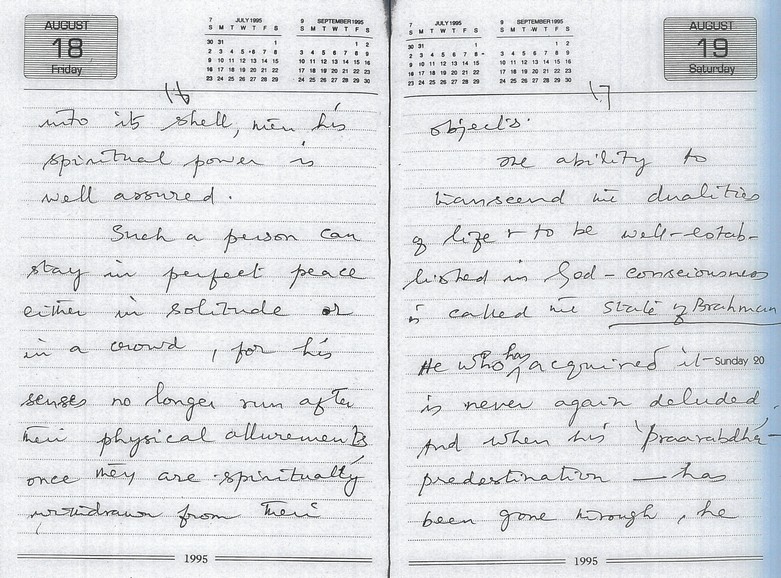 AUGUST
18
Friday
7 JULY 1995
S M T W T F S
30 31 1
2 3 4 5 6 7 8
9 10 11 12 13 14 15
16 17 18 19 20 21 22
23 24 25 26 27 28 29
9 SEPTEMBER 1995
S M T W T F S
1 2
3 4 5 6 7 8 9
10 11 12 13 14 15 16
17 18 19 20 21 22 23
24 25 26 27 28 29 30
16
into its shell, then his
spiritual power is
well assured.
Such a person can
stay in perfect peace
either in solitude or
in a crowd, for his
senses no longer run after
their physical allurements
once they are spiritually
withdrawn from their
1995
7 JULY 1995
S M T W T F S
30 31 1
2 3 4 5 6 7 8
9 10 11 12 13 14 15
16 17 18 19 20 21 22
23 24 25 26 27 28 29
9 SEPTEMBER 1995
S M T W T F S
1 2
3 4 5 6 7 8 9
10 11 12 13 14 15 16
17 18 19 20 21 22 23
24 25 26 27 28 29 30
AUGUST
19
Saturday
17
objects.
The ability to
transcend the dualities
of life & to be well-estab-
lished in God-consciousness
is called the State of Brahman
He who has acquired it- Sunday 20
is never again deluded
And when his 'praarabdha'-
predestination — has
been gone through, he
1995